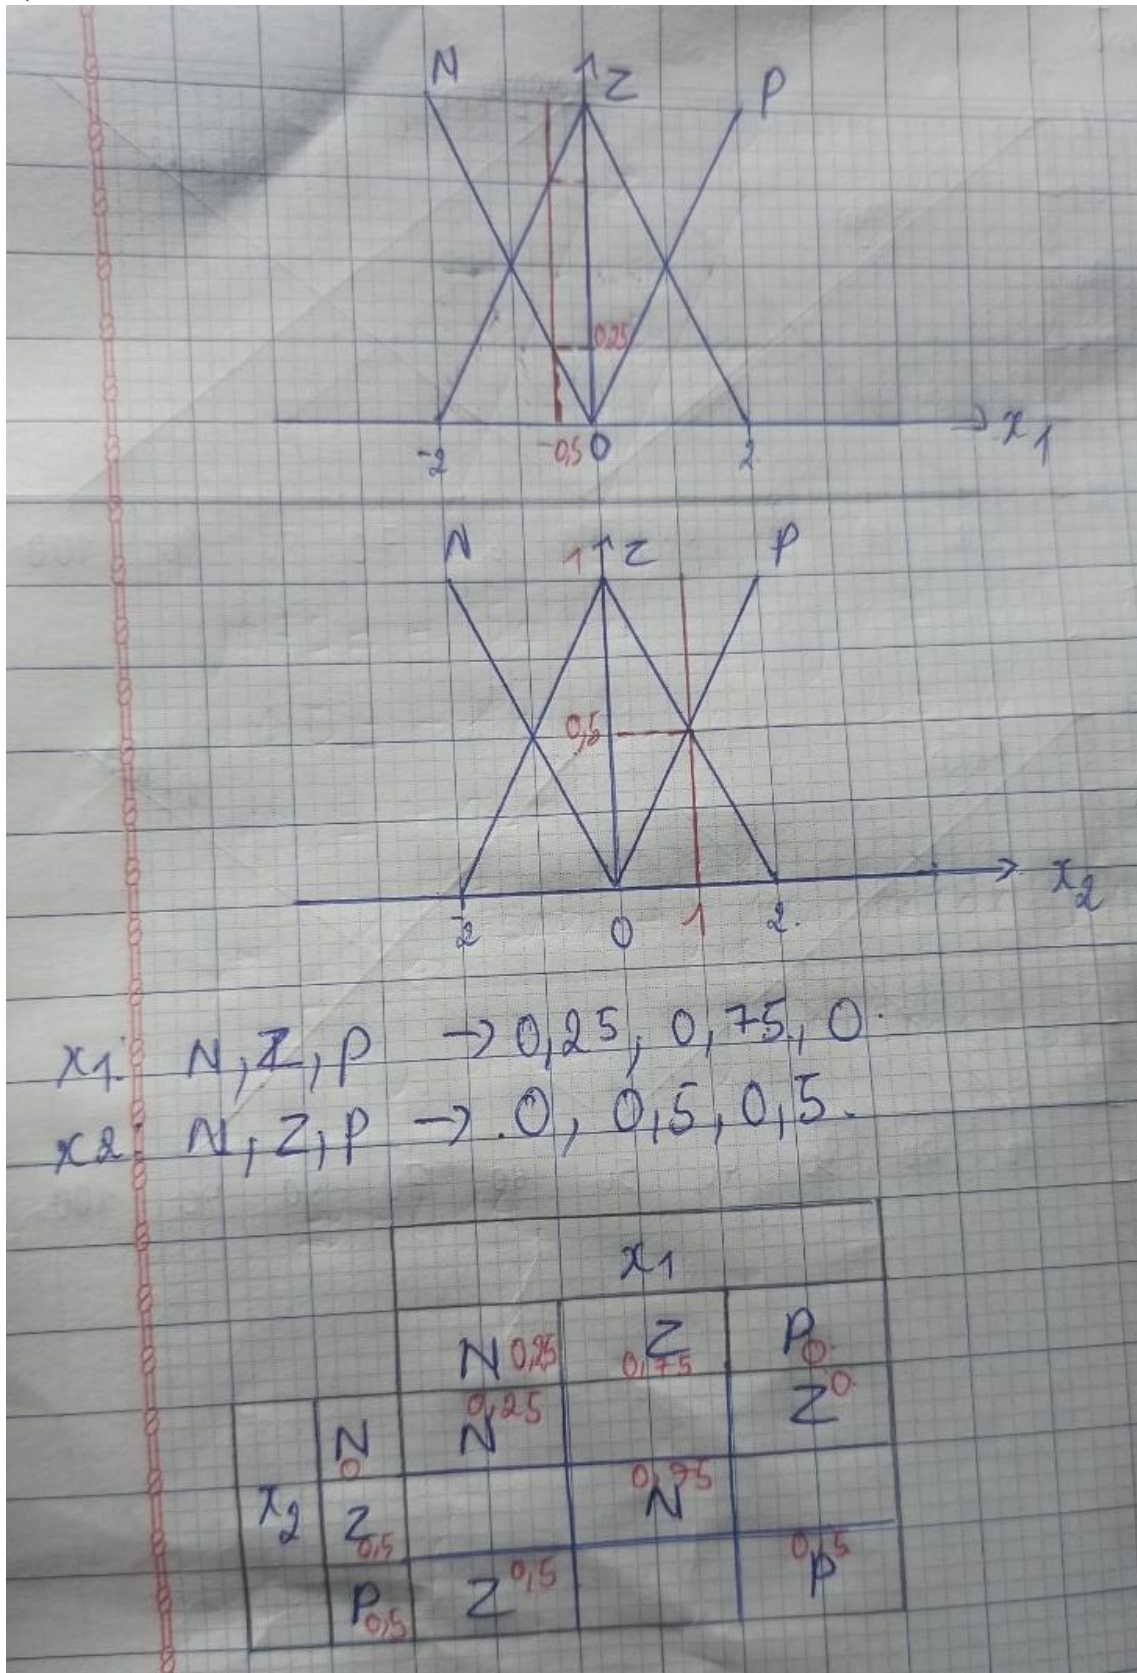 N Z P
0,25
-2 -0,5 0 2 x1
N 1 Z P
0,5
-2 0 1 2. x2
x1: N, Z, P → 0,25, 0,75, 0.
x2: N, Z, P → .0, 0,5, 0,5.
x1
N 0,25 Z 0,75 P 0
N 0 N 0,25 Z 0
x2 Z 0,5 N 0,75
P 0,5 Z 0,5 P 0,5